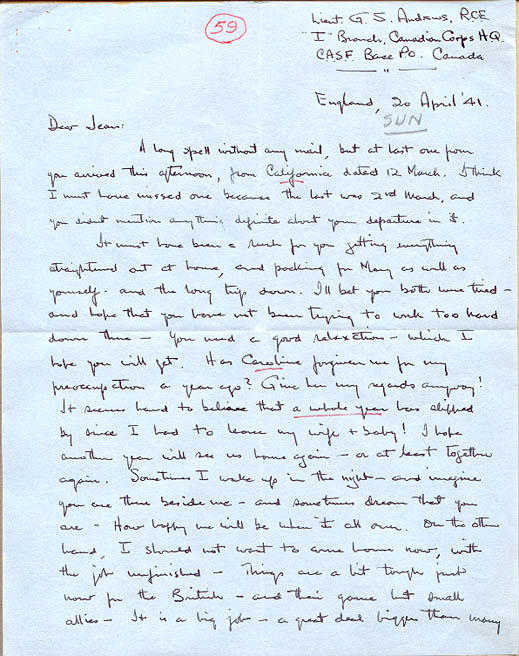 59
Lieut. G. S. Andrews, RCE
"I" Branch, Canadian Corps H.Q.
C.A.S.F. Base P.O. Canada
England, 20 April '41.
SUN
Dear Jean:
A long spell without any mail, but at last one from
you arrived this afternoon, from California dated 12 March. I think
I must have missed one because the last was 2nd March, and
you didn't mention anything definite about your departure in it.
It must have been a rush for you getting everything
straightened out at home, and packing for Mary as well as
yourself - and the long trip down. I'll bet you both were tired -
and hope that you have not been trying to work too hard
down there - you need a good relaxation - which I
hope you will get. Has Caroline forgiven me for my
preoccupation a year ago? Give her my regards anyway!
It seems hard to believe that a whole year has slipped
by since I had to leave my wife + baby! I hope
another year will see us home again - or at least together
again. Sometimes I wake up in the night - and imagine
you are there beside me - and sometimes dream that you
are - How happy we will be when it's all over. On the other
hand, I should not want to come home now, with
the job unfinished - Things are a bit tough just
now for the British - and their game but small
allies - It is a big job - a great deal bigger than many